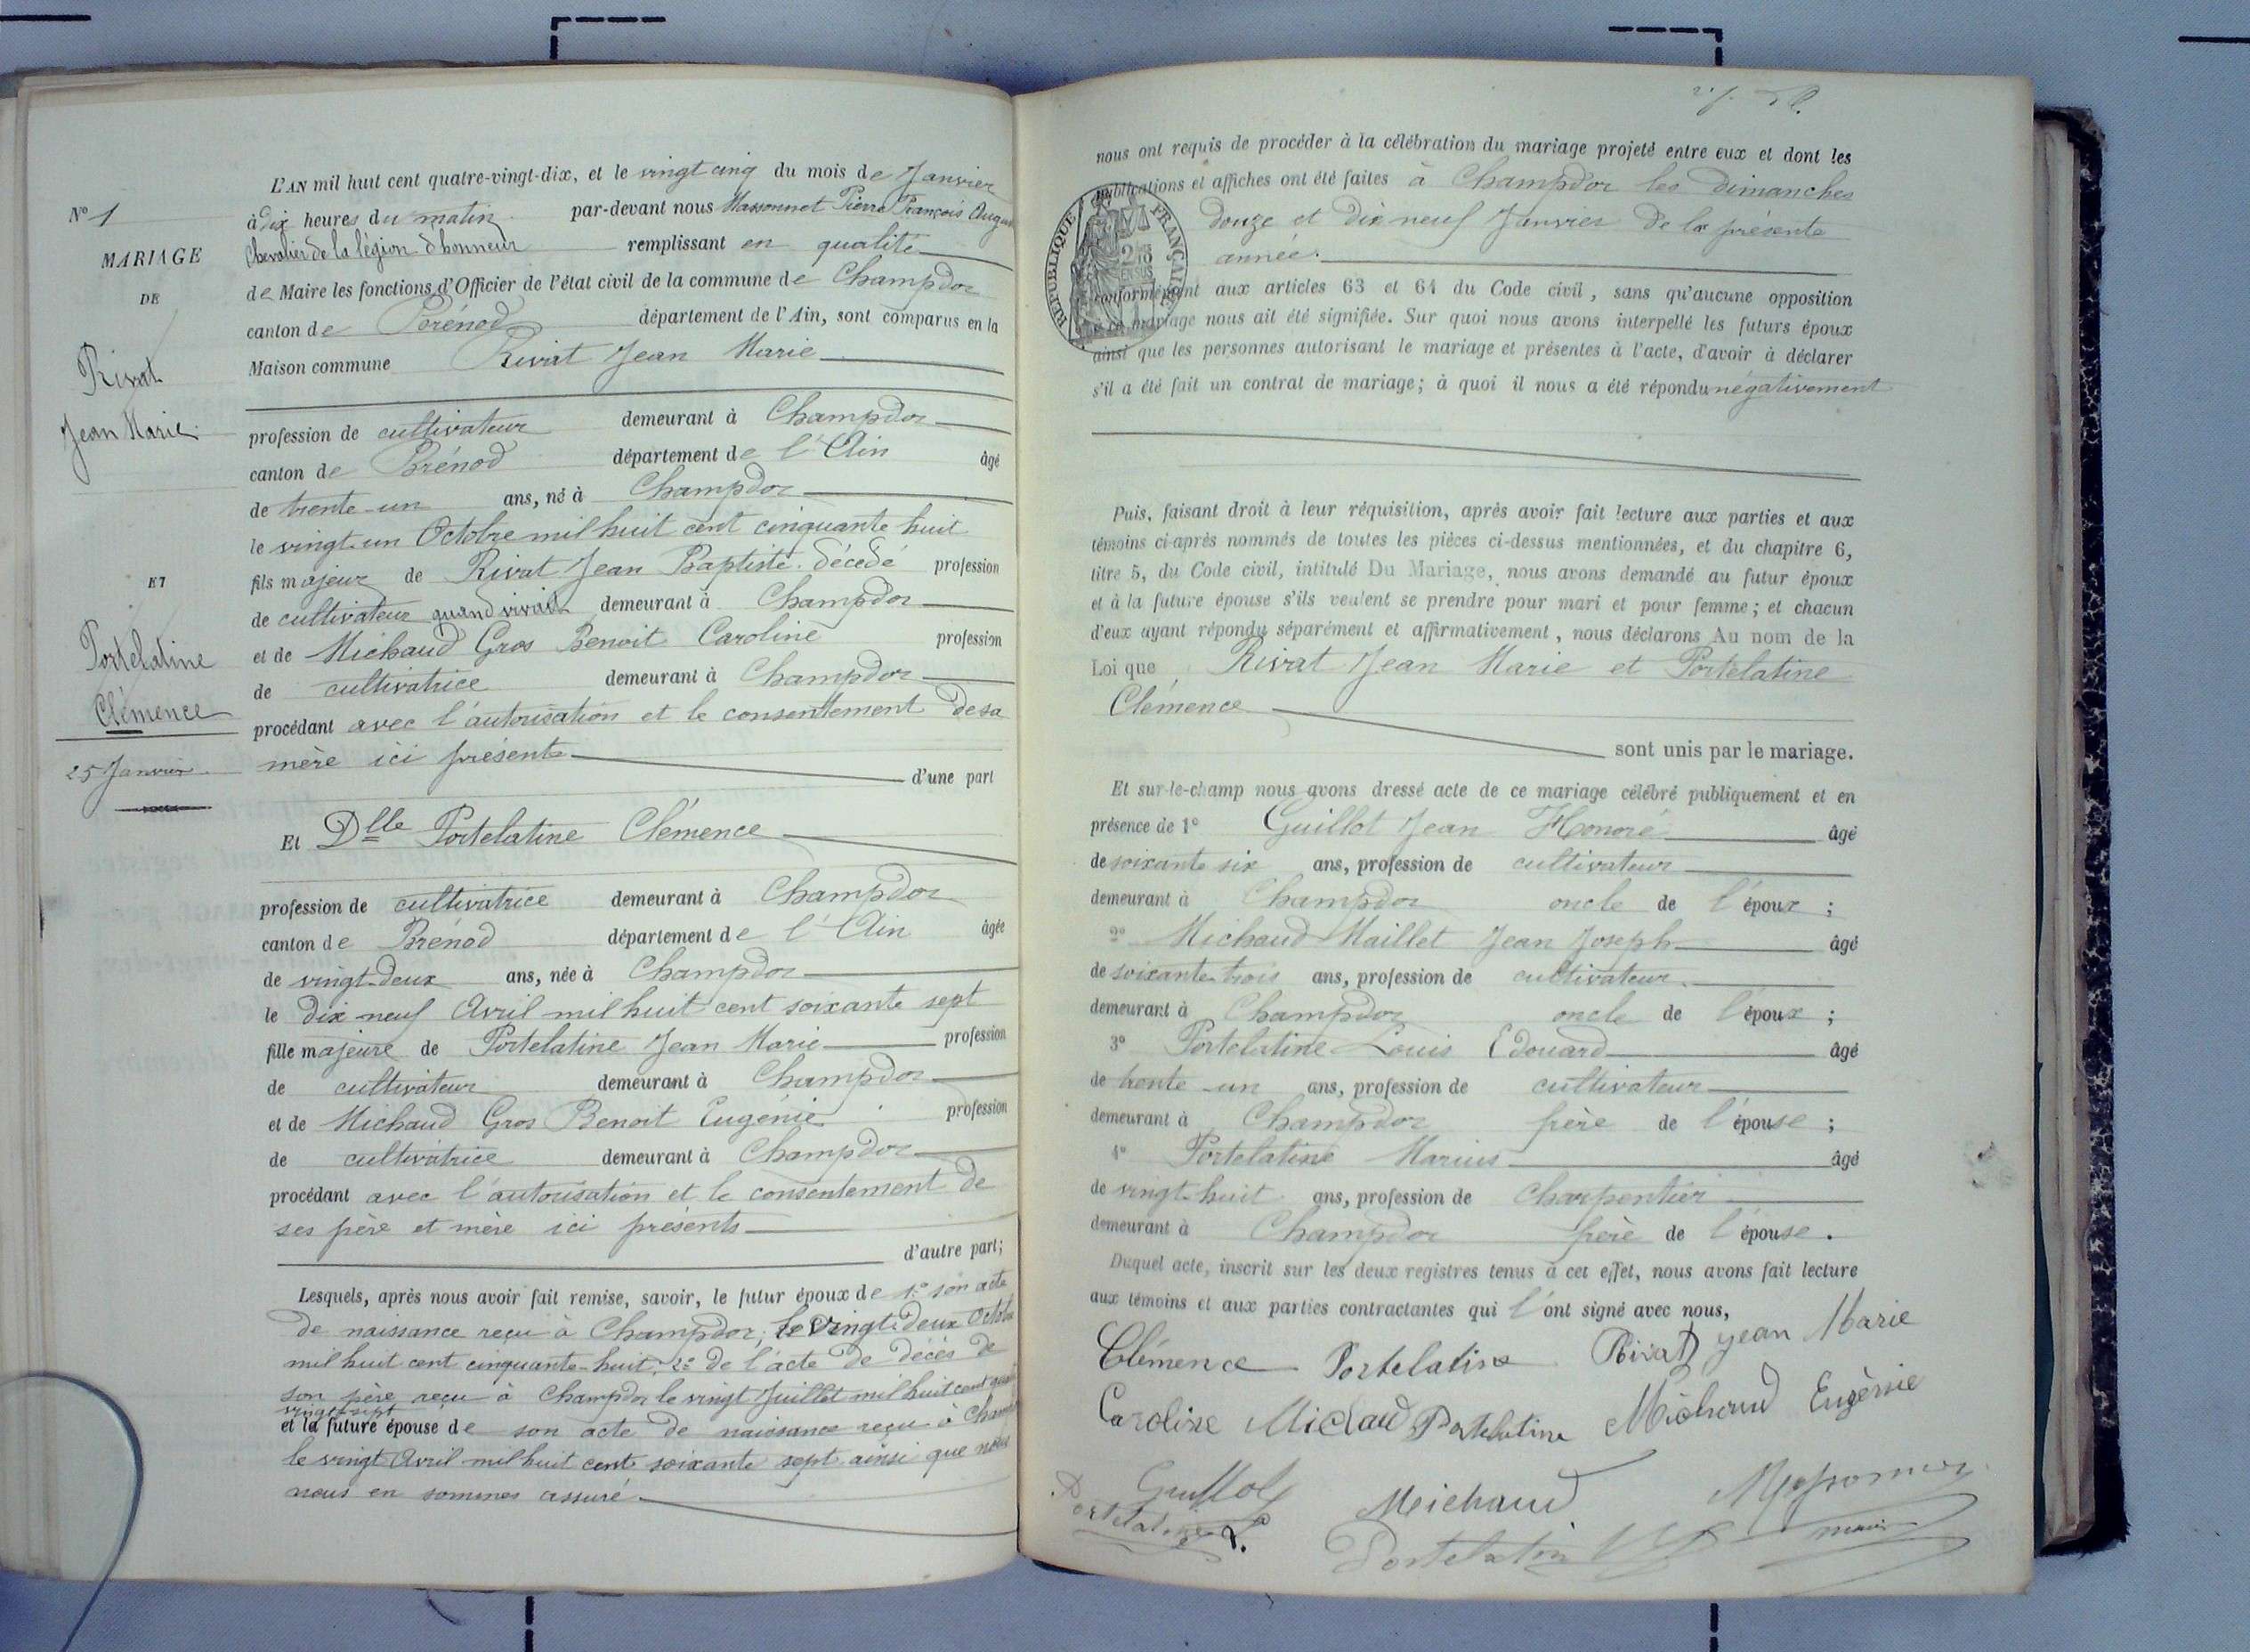 N° 1
MARIAGE
DE
Rivat
Jean Marie
ET
Portelatine
Clémence
25 Janvier
L'AN mil huit cent quatre-vingt-dix, et le vingt cinq du mois de Janvier
à dix heures du matin par-devant nous Massonnet Pierre François
Chevalier de la légion d'honneur remplissant en qualité
de Maire les fonctions d'Officier de l'état civil de la commune de Champdor
canton de Brénod département de l'Ain, sont comparus en la
Maison commune Rivat Jean Marie
profession de cultivateur demeurant à Champdor
canton de Brénod département de l'Ain âgé
de trente-un ans, né à Champdor
le vingt-un Octobre mil huit cent cinquante huit
fils majeur de Rivat Jean Baptiste décédé profession
de cultivateur quand vivait demeurant à Champdor
et de Michaud Gros Benoit Caroline profession
de cultivatrice demeurant à Champdor
procédant avec l'autorisation et le consentement de sa
mère ici présente d'une part
Et Dlle Portelatine Clémence
profession de cultivatrice demeurant à Champdor
canton de Brénod département de l'Ain âgée
de vingt-deux ans, née à Champdor
le dix neuf Avril mil huit cent soixante sept
fille majeure de Portelatine Jean Marie profession
de cultivateur demeurant à Champdor
et de Michaud Gros Benoit Eugénie profession
de cultivatrice demeurant à Champdor
procédant avec l'autorisation et le consentement de
ses père et mère ici présents
d'autre part;
Lesquels, après nous avoir fait remise, savoir, le futur époux de 1° son acte
de naissance reçu à Champdor, le vingt-deux Octobre
mil huit cent cinquante-huit; 2° de l'acte de décès de
son père reçu à Champdor le vingt Juillet mil huit cent
vingt-sept
et la future épouse de son acte de naissance reçu à
le vingt Avril mil huit cent soixante sept ainsi que nous
nous en sommes assuré
nous ont requis de procéder à la célébration du mariage projeté entre eux et dont les
publications et affiches ont été faites à Champdor les dimanches
douze et dix neuf Janvier de la présente
année.
RÉPUBLIQUE FRANÇAISE
conformément aux articles 63 et 64 du Code civil, sans qu'aucune opposition
à ce mariage nous ait été signifiée. Sur quoi nous avons interpellé les futurs époux
ainsi que les personnes autorisant le mariage et présentes à l'acte, d'avoir à déclarer
s'il a été fait un contrat de mariage; à quoi il nous a été répondu négativement
Puis, faisant droit à leur réquisition, après avoir fait lecture aux parties et aux
témoins ci-après nommés de toutes les pièces ci-dessus mentionnées, et du chapitre 6,
titre 5, du Code civil, intitulé Du Mariage, nous avons demandé au futur époux
et à la future épouse s'ils veulent se prendre pour mari et pour femme; et chacun
d'eux ayant répondu séparément et affirmativement, nous déclarons Au nom de la
Loi que Rivat Jean Marie et Portelatine
Clémence
sont unis par le mariage.
Et sur-le-champ nous avons dressé acte de ce mariage célébré publiquement et en
présence de 1° Guillot Jean Honoré âgé
de soixante six ans, profession de cultivateur
demeurant à Champdor oncle de l'époux ;
2° Michaud Maillet Jean Joseph âgé
de soixante-trois ans, profession de cultivateur
demeurant à Champdor oncle de l'époux ;
3° Portelatine Louis Edouard âgé
de trente-un ans, profession de cultivateur
demeurant à Champdor frère de l'épouse ;
4° Portelatine Marius âgé
de vingt-huit ans, profession de charpentier
demeurant à Champdor frère de l'épouse.
Duquel acte, inscrit sur les deux registres tenus à cet effet, nous avons fait lecture
aux témoins et aux parties contractantes qui l'ont signé avec nous,
Clémence Portelatine Rivat jean Marie
Caroline Michaud Portelatine Michaud Eugènie
Guillot Michaud Massonnet
Portelatine Portelatin maire